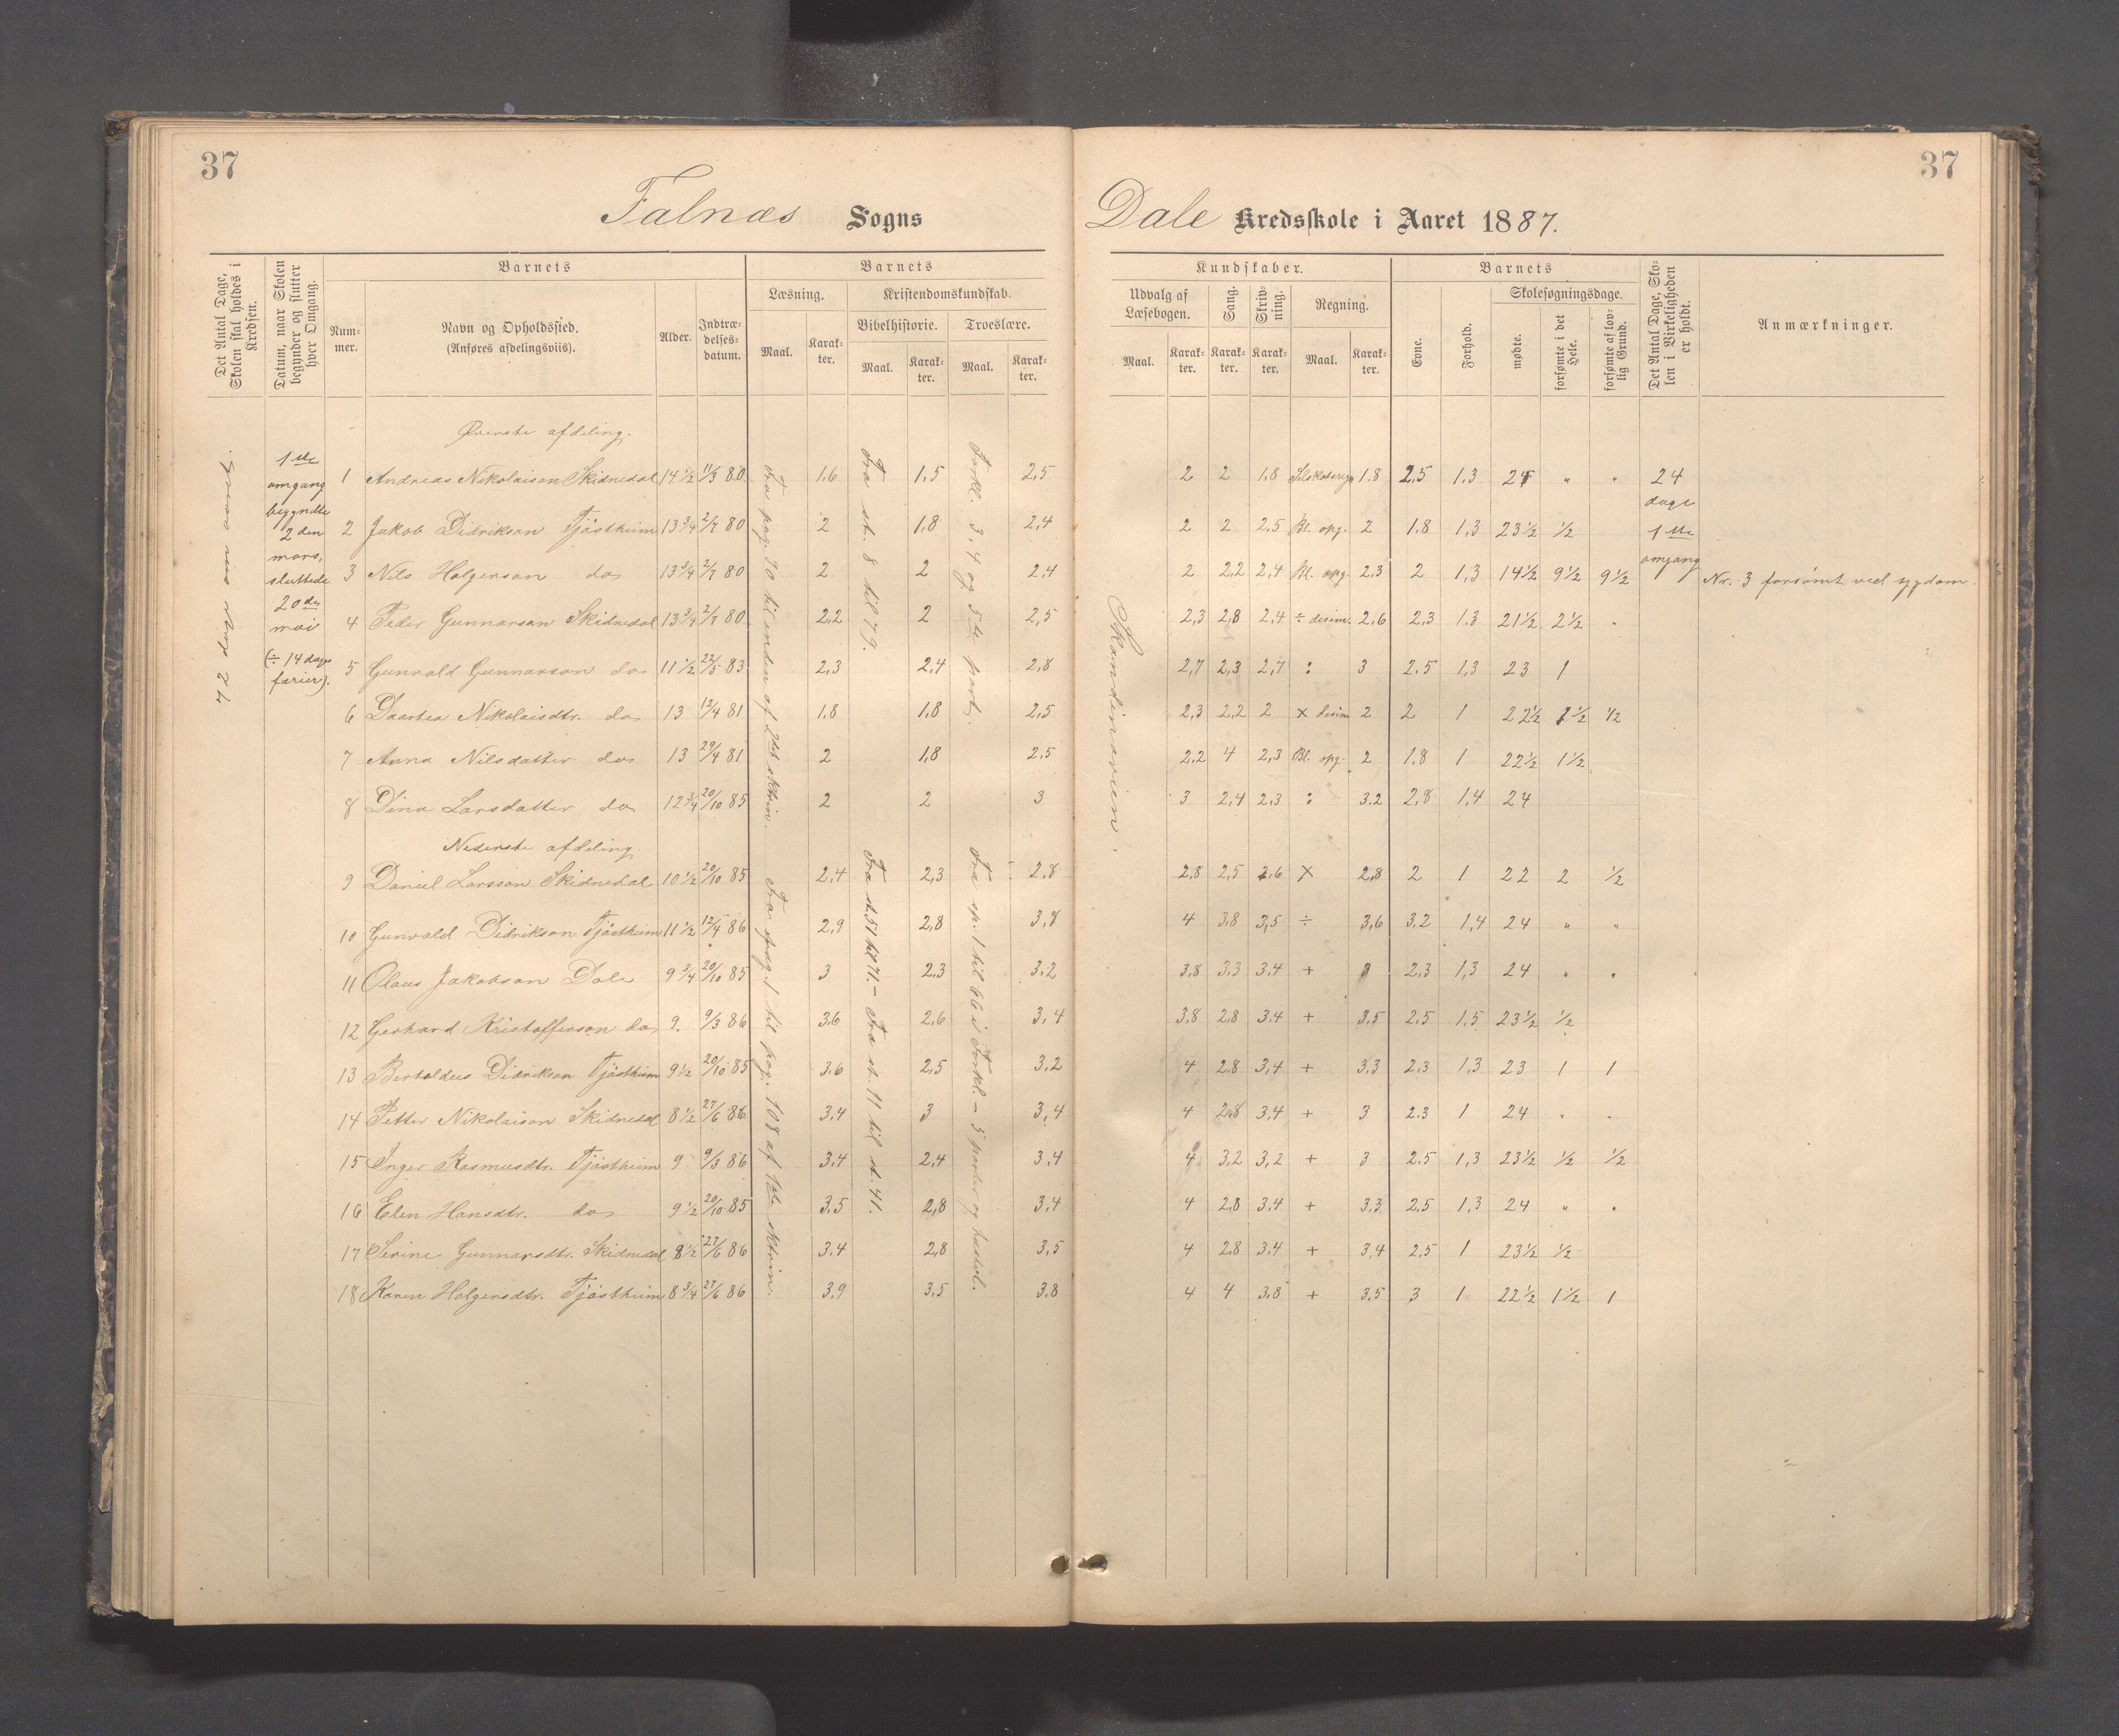 37
37
Falnæs Sogns
Dale Kredsskole i Aaret 1887.
Det Antal Dage, Skolen skal holdes i Kredsen.
Datum, naar Skolen begynder og slutter hver Omgang.
Barnets
Nummer.
Navn og Opholdssted. (Anføres afdelingsviis).
Alder.
Indtrædelses-datum.
Barnets
Læsning.
Maal.
Karakter.
Kristendomskundskab.
Bibelhistorie.
Maal.
Karakter.
Troeslære.
Maal.
Karakter.
Kundskaber.
Udvalg af Læsebogen.
Maal.
Karakter.
Sang.
Karakter.
Skrivning.
Karakter.
Regning.
Maal.
Karakter.
Barnets
Evne.
Forhold.
Skolesøgningsdage.
mødte.
forsømte i det Hele.
forsømte af lovlig Grund.
Det Antal Dage, Skolen i Virkeligheden er holdt.
Anmærkninger.
1ste omgang begyndte 2den mars, sluttede 20de mai (÷ 14 dage færier).
Øverste afdeling.
1 Andreas Nikolaison Skidnedal 14 1/2 11/3 80 1,6 1,5 2,5 2 2 1,8 1,8 2,5 1,3 24 " "
2 Jakob Didrikson Tjøstheim 13 3/4 2/7 80 2 1,8 2,4 2 2 2,5 Bl. opg. 2 1,8 1,3 23 1/2 1/2
3 Nils Holgerson do 13 3/4 2/7 80 2 2 2,4 2 2,2 2,4 Bl. opg. 2,3 2 1,3 14 1/2 9 1/2 9 1/2 Nr. 3 forsømt ved sygdom.
4 Peder Gunnarson Skidnedal 13 3/4 2/7 80 2,2 2 2,5 2,3 2,8 2,4 ÷ desim. 2,6 2,3 1,3 21 1/2 2 1/2
5 Gunvald Gunnarson do 11 1/2 22/5 83 2,3 2,4 2,8 2,7 2,3 2,7 : 3 2,5 1,3 23 1
6 Daartea Nikolaisdtr. do 13 12/4 81 1,8 1,8 2,5 2,3 2,2 2 × desim 2 2 1 22 1/2 1 1/2 1/2
7 Anna Nilsdatter do 13 29/4 81 2 1,8 2,5 2,2 4 2,3 Bl. opg. 2 1,8 1 22 1/2 1 1/2
8 Dina Larsdatter do 12 3/4 20/10 85 2 2 3 3 2,4 2,3 : 3,2 2,8 1,4 24
Nederste afdeling.
9 Daniel Larsson Skidnedal 10 1/2 20/10 85 2,4 2,3 2,8 2,8 2,5 2,6 × 2,8 2 1 22 2 1/2
10 Gunvald Didrikson Tjøstheim 11 1/2 12/4 86 2,9 2,8 3,8 4 3,8 3,5 ÷ 3,6 3,2 1,4 24 " "
11 Olaus Jakobson Dale 9 3/4 20/10 85 3 2,3 3,2 3,8 3,3 3,4 + 3 2,3 1,3 24 " "
12 Gerhard Kristofferson do 9 9/3 86 3,6 2,6 3,4 3,8 2,8 3,4 + 3,5 2,5 1,5 23 1/2 1/2
13 Bertoldus Didrikson Tjøstheim 9 1/2 20/10 85 3,6 2,5 3,2 4 2,8 3,4 + 3,3 2,3 1,3 23 1 1
14 Petter Nikolaison Skidnedal 8 1/2 27/6 86 3,4 3 3,4 4 2,8 3,4 + 3 2,3 1 24 " "
15 Inger Rasmusdtr. Tjøstheim 9 9/3 86 3,4 2,4 3,4 4 3,2 3,2 + 3 2,5 1,3 23 1/2 1/2 1/2
16 Elen Hansdtr. do 9 1/2 20/10 85 3,5 2,8 3,4 4 2,8 3,4 + 3,3 2,5 1,3 24 " "
17 Serine Gunnarsdtr. Skidnedal 8 1/2 27/6 86 3,4 2,8 3,5 4 2,8 3,4 + 3,4 2,5 1 23 1/2 1/2
18 Karen Holgersdtr. Tjøstheim 8 3/4 27/6 86 3,9 3,5 3,8 4 4 3,8 + 3,5 3 1 22 1/2 1 1/2 1
24 dage 1ste omgang
Fra pag. 90 til enden af 2det sktrin.
Fra st. 8 til 79.
Forkl. 3, 4 og 5te part.
Fra pag. 1 til pag. 108 af 1ste sktrin.
Fra st. 51 til 71. – Fra st. 11 til st. 41.
Fra sp. 1 til 66 i Forkl. – 5 parter og
Skandinavien.
24 dage